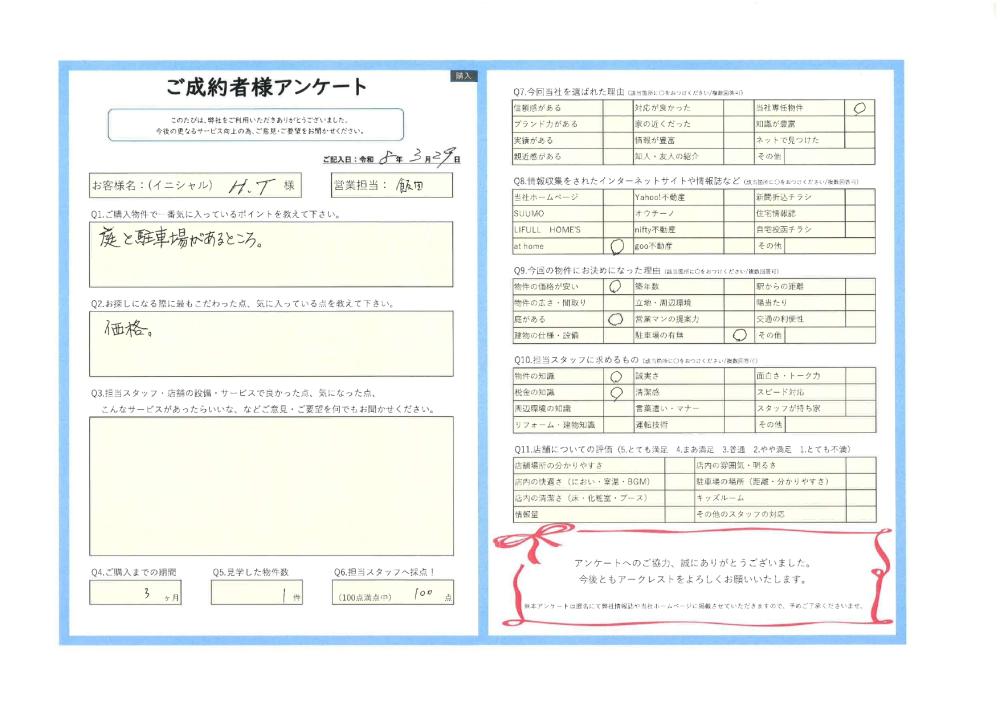 購入
ご成約者様アンケート
このたびは、弊社をご利用いただきありがとうございました。
今後の更なるサービス向上の為、ご意見・ご要望をお聞かせください。
ご記入日：令和 8 年 3 月 29 日
お客様名：（イニシャル） H.T 様
営業担当： 飯田
Q1.ご購入物件で一番気に入っているポイントを教えて下さい。
庭と駐車場があるところ。
Q2.お探しになる際に最もこだわった点、気に入っている点を教えて下さい。
価格。
Q3.担当スタッフ・店舗の設備・サービスで良かった点、気になった点、
こんなサービスがあったらいいな、などご意見・ご要望を何でもお聞かせください。
Q4.ご購入までの期間 Q5.見学した物件数 Q6.担当スタッフへ採点！
3 ヶ月 1 件 （100点満点中） 100 点
Q7.今回当社を選ばれた理由（該当箇所に○をおつけください/複数回答可）
信頼感がある 対応が良かった 当社専任物件 ○
ブランド力がある 家の近くだった 知識が豊富
実績がある 情報が豊富 ネットで見つけた
親近感がある 知人・友人の紹介 その他
Q8.情報収集をされたインターネットサイトや情報誌など（該当箇所に○をおつけください/複数回答可）
当社ホームページ Yahoo!不動産 新聞折込チラシ
SUUMO オウチーノ 住宅情報誌
LIFULL HOME'S nifty不動産 自宅投函チラシ
at home ○ goo不動産 その他
Q9.今回の物件にお決めになった理由（該当箇所に○をおつけください/複数回答可）
物件の価格が安い ○ 築年数 駅からの距離
物件の広さ・間取り 立地・周辺環境 陽当たり
庭がある ○ 営業マンの提案力 交通の利便性
建物の仕様・設備 駐車場の有無 ○ その他
Q10.担当スタッフに求めるもの（該当箇所に○をおつけください/複数回答可）
物件の知識 ○ 誠実さ 面白さ・トーク力
税金の知識 ○ 清潔感 スピード対応
周辺環境の知識 言葉遣い・マナー スタッフが持ち家
リフォーム・建物知識 運転技術 その他
Q11.店舗についての評価（5.とても満足 4.まあ満足 3.普通 2.やや満足 1.とても不満）
店舗場所の分かりやすさ 店内の雰囲気・明るさ
店内の快適さ（におい・室温・BGM） 駐車場の場所（距離・分かりやすさ）
店内の清潔さ（床・化粧室・ブース） キッズルーム
情報量 その他のスタッフの対応
アンケートへのご協力、誠にありがとうございました。
今後ともアークレストをよろしくお願いいたします。
※本アンケートは匿名にて弊社情報誌や当社ホームページに掲載させていただきますので、予めご了承くださいませ。